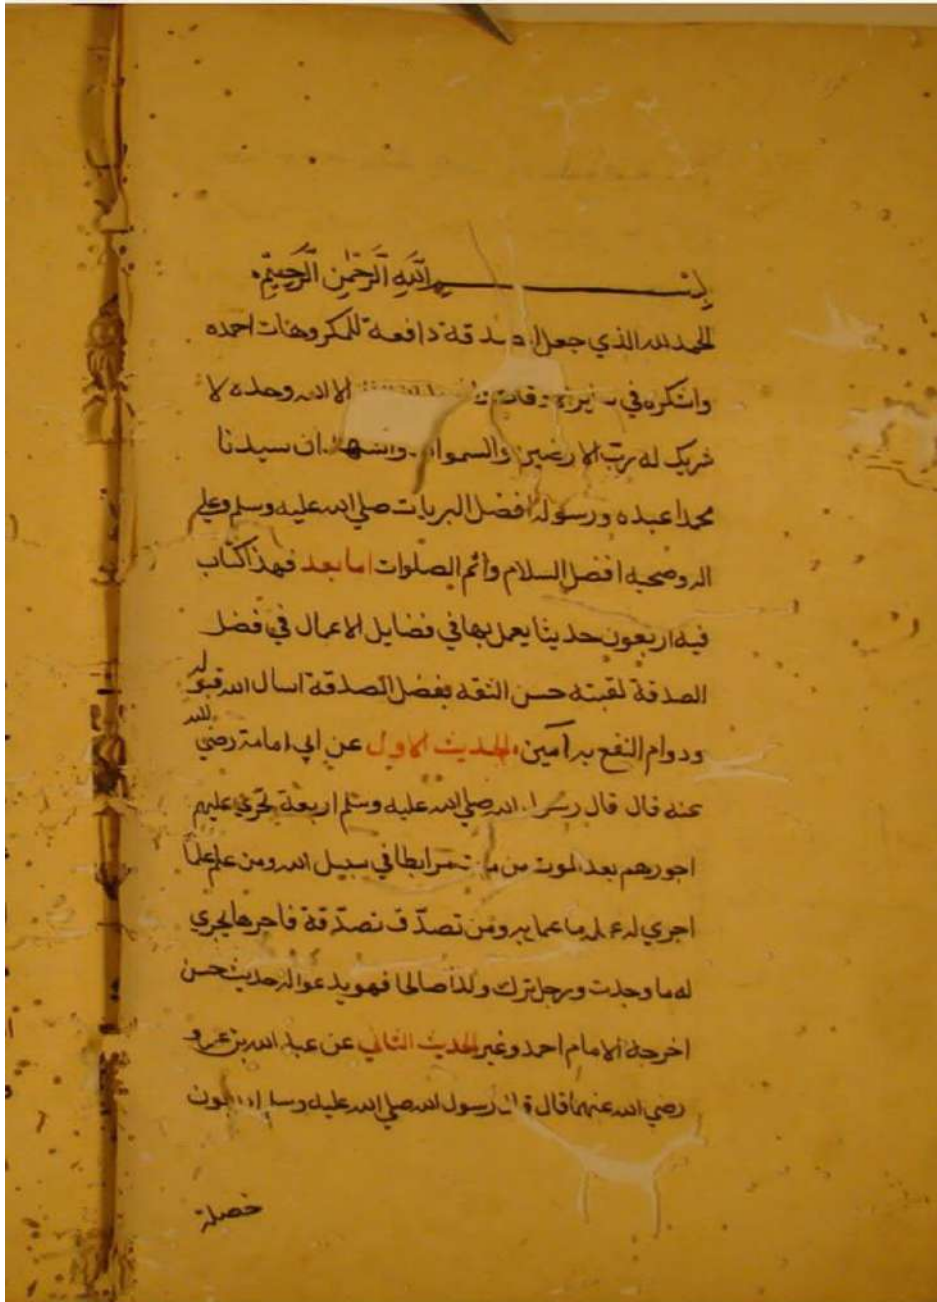 بسم الله الرحمن الرحيم
الحمد لله الذي جعل الصدقة دافعة للمكروهات احمده
واشكره في الا الله وحده لا
شريك له رب الارضين والسموات واشهد ان سيدنا
محمدا عبده ورسوله افضل البريات صلي الله عليه وسلم وعلي
اله وصحبه افضل السلام واتم الصلوات اما بعد فهذا كتاب
فيه اربعون حديثا يعمل بها في فضايل الاعمال في فضل
الصدقة لقبته حسن الثقه بفضل الصدقة اسال الله قبوله
ودوام النفع به آمين الحديث الاول عن ابي امامة رضي الله
عنه قال قال رسول الله صلي الله عليه وسلم اربعة تجري عليهم
اجورهم بعد الموت من مات مرابطا في سبيل الله ومن علم علما
اجري له عمله ما عمل به ومن تصدّق تصدّقة فاجرها يجري
له ما وجدت ورجل ترك ولدا صالحا فهو يدعو له حديث حسن
اخرجه الامام احمد وغيره الحديث الثاني عن عبد الله بن عمرو
رضي الله عنهما قال قال رسول الله صلي الله عليه وسلم اربعون
خصلة